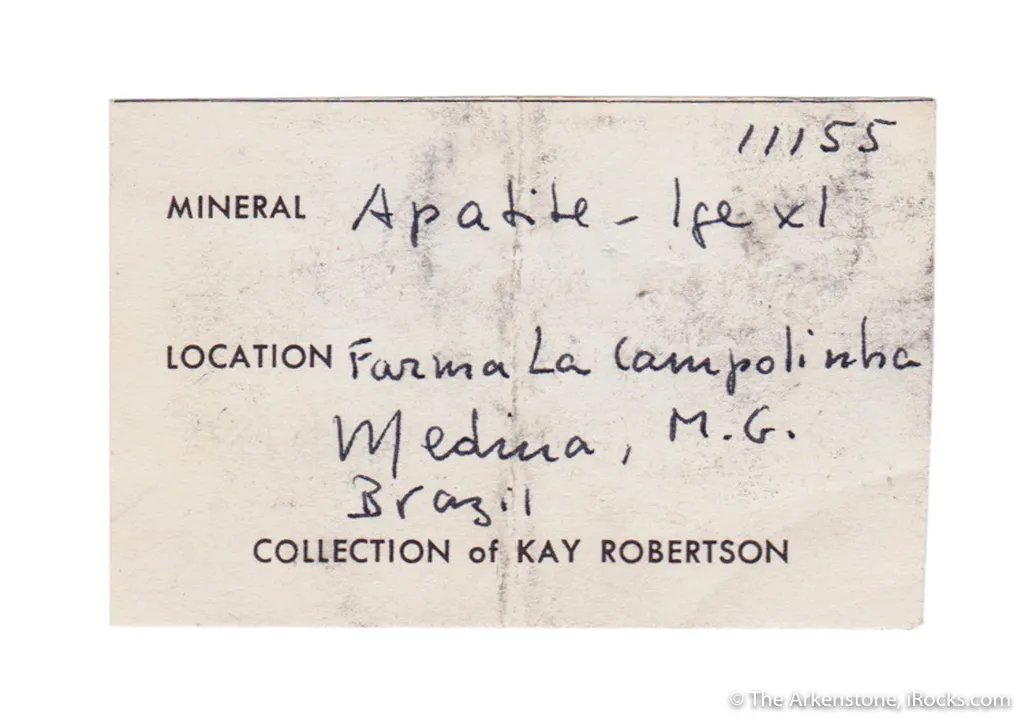 11155
MINERAL Apatite - lge xl
LOCATION Farma La Campolinha
Medina, M.G.
Brazil
COLLECTION of KAY ROBERTSON
© The Arkenstone, iRocks.com